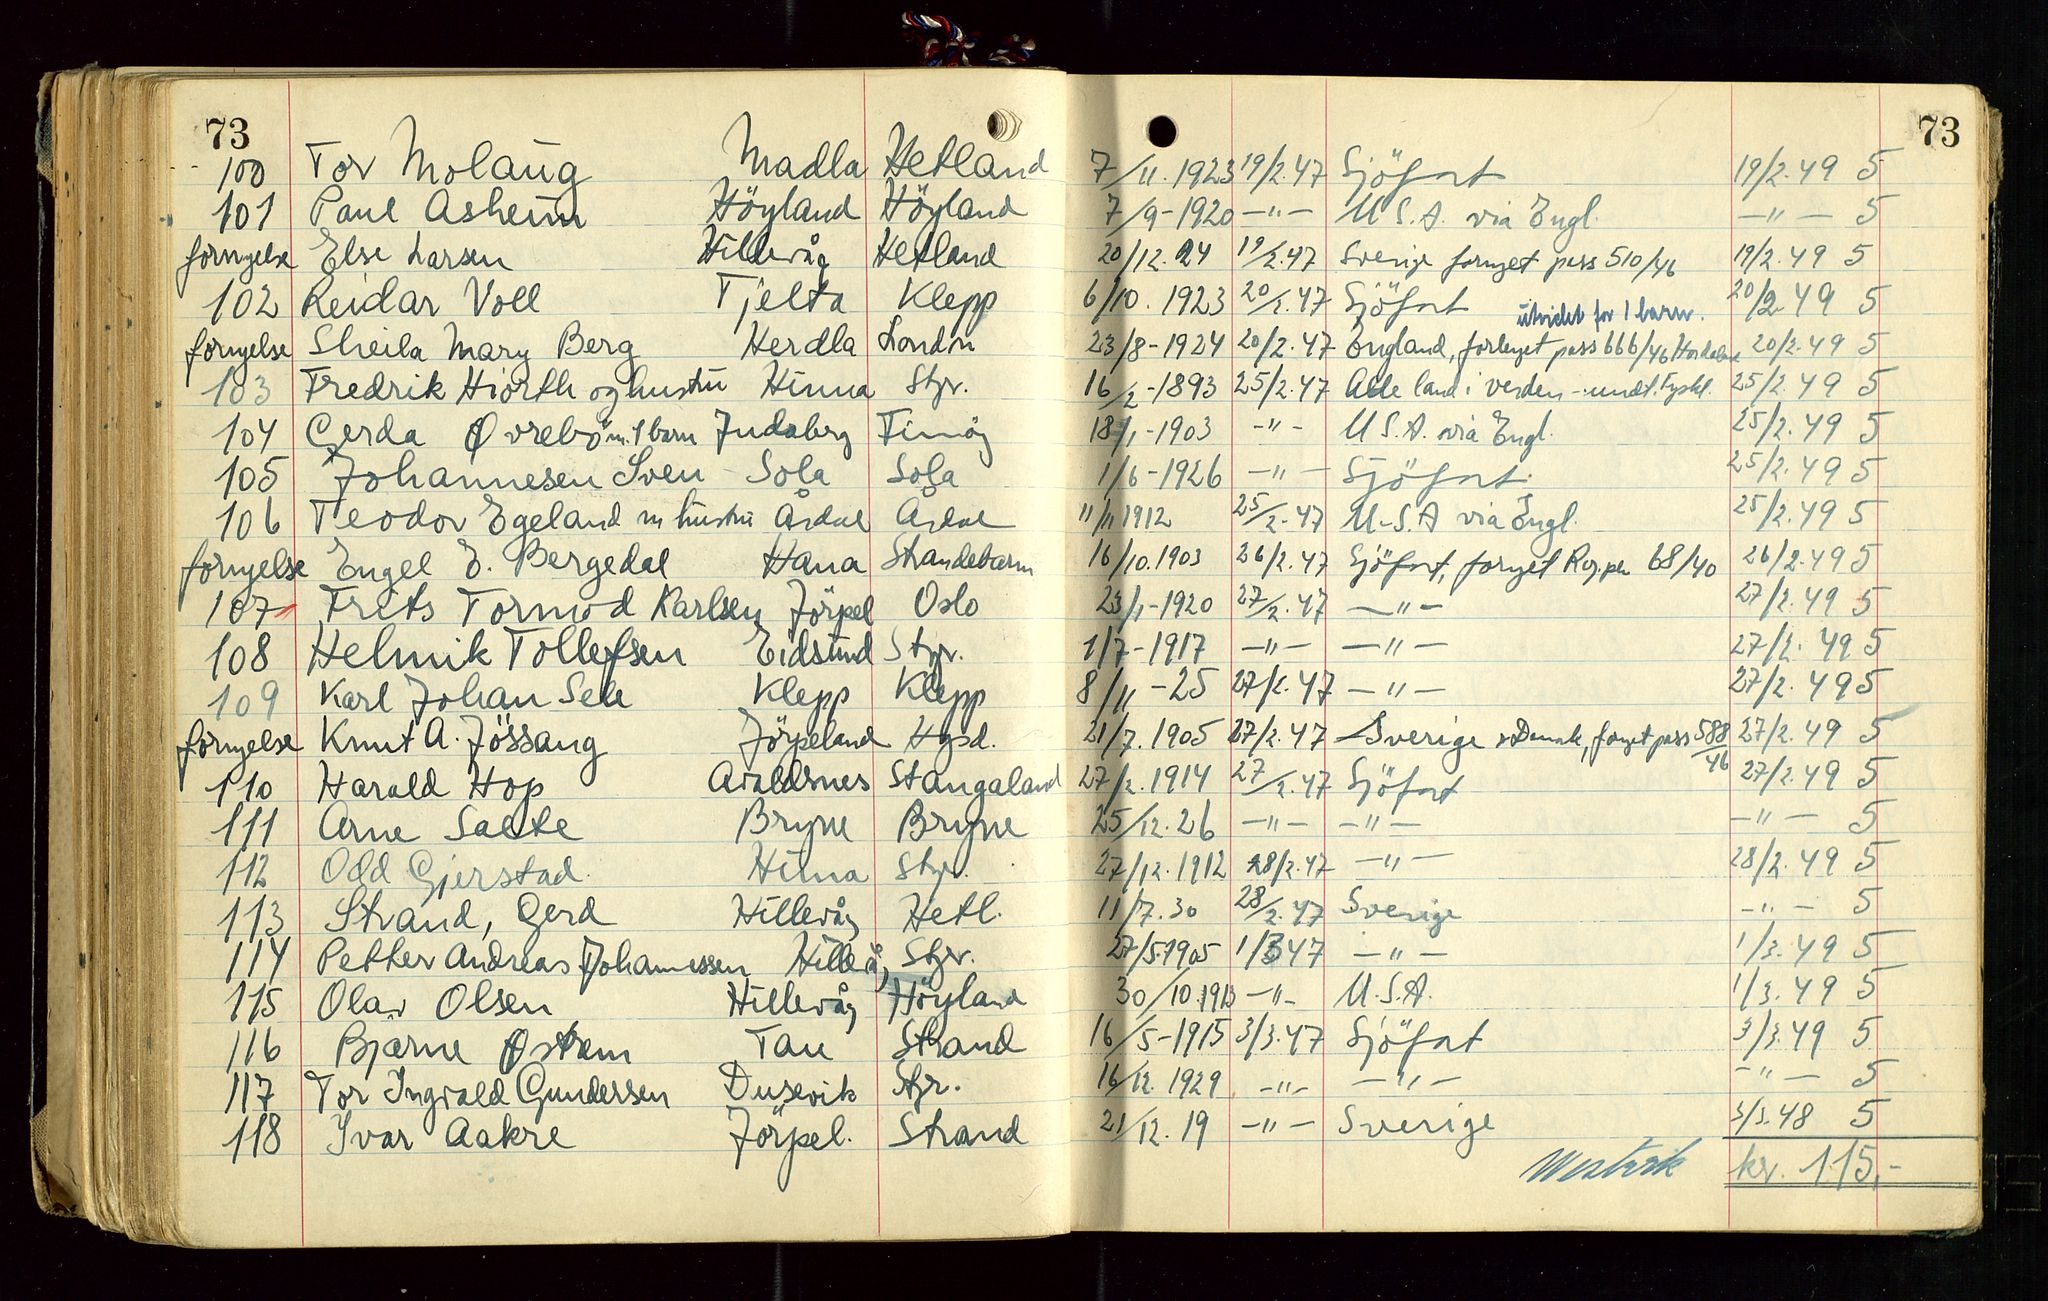 73 73
100 Tor Molaug Madla Hetland 7/11. 1923 19/2.47 Sjöfart 19/2.49 5
101 Paul Asheim Höyland Höyland 7/9-1920 -"- U.S.A. via Engl. -"- 5
fornyelse Else Larsen Hillevåg Hetland 20/12. 24 19/2.47 Sverige fornyet pass 510/46 19/2.49 5
102 Reidar Voll Tjelta Klepp 6/10. 1923 20/2.47 Sjöfart 20/2 49 5
utvidet for 1 barn.
fornyelse Sheila Mary Berg Herdla London 23/8-1924 20/2.47 England, forlenget pass 666/46 Hordaland 20/2.49 5
103 Fredrik Hiorth og hustru Hinna Stgr. 16/2-1893 25/2.47 Alle land i verden - undt. Tyskl. 25/2.49 5
104 Gerda Øvrebö m. 1 barn Judaberg Finnöy 18/1-1903 -"- U.S.A. via Engl. 25/2.49 5
105 Johannesen Sven Sola Sola 1/6-1926 -"- Sjöfart. 25/2.49 5
106 Teodor Egeland m hustru Årdal Årdal 11/11 1912 25/2.47 U.S.A via Engl. 25/2.49 5
fornyelse Engel E. Bergedal Hana Strandebarm 16/10.1903 26/2.47 Sjöfart, fornyet 68/40 26/2.49 5
107 Frits Tormod Karlsen Jörpel Oslo 23/1-1920 27/2.47 -"- 27/2.49 5
108 Helmik Tollefsen Eidsund Stgr. 1/7-1917 -"- -"- 27/2.49 5
109 Karl Johan Sele Klepp Klepp 8/11-25 27/2.47 -"- 27/2.49 5
fornyelse Knut A. Jössang Jörpeland Hgsd. 21/7.1905 27/2.47 Sverige o Danmk, fornyet pass 588/46 27/2.49 5
110 Harald Hop Avaldsnes Stangaland 27/2.1914 27/2.47 Sjöfart 27/2.49 5
111 Arne Saelte Bryne Bryne 25/12.26 -"- -"- -"- 5
112 Odd Gjerstad. Hinna Stgr. 27/12.1912 28/2.47 -"- 28/2.49 5
113 Strand, Gerd Hillevåg Hetl. 11/7.30 28/2.47 Sverige -"- 5
114 Petter Andreas Johannessen Hillevåg Stgr. 27/5.1905 1/3 47 -"- 1/3.49 5
115 Olav Olsen Hillevåg Höyland 30/10.1913 -"- U.S.A. 1/3.49 5
116 Bjarne Østrem Tau Strand 16/5-1915 3/3.47 Sjöfart 3/3.49 5
117 Tor Ingvald Gundersen Dusevik Stgr. 16/12.1929 -"- -"- -"- 5
118 Ivar Aakre Jörpel. Strand 21/12.19 -"- Sverige 3/3.48 5
kr. 115,-